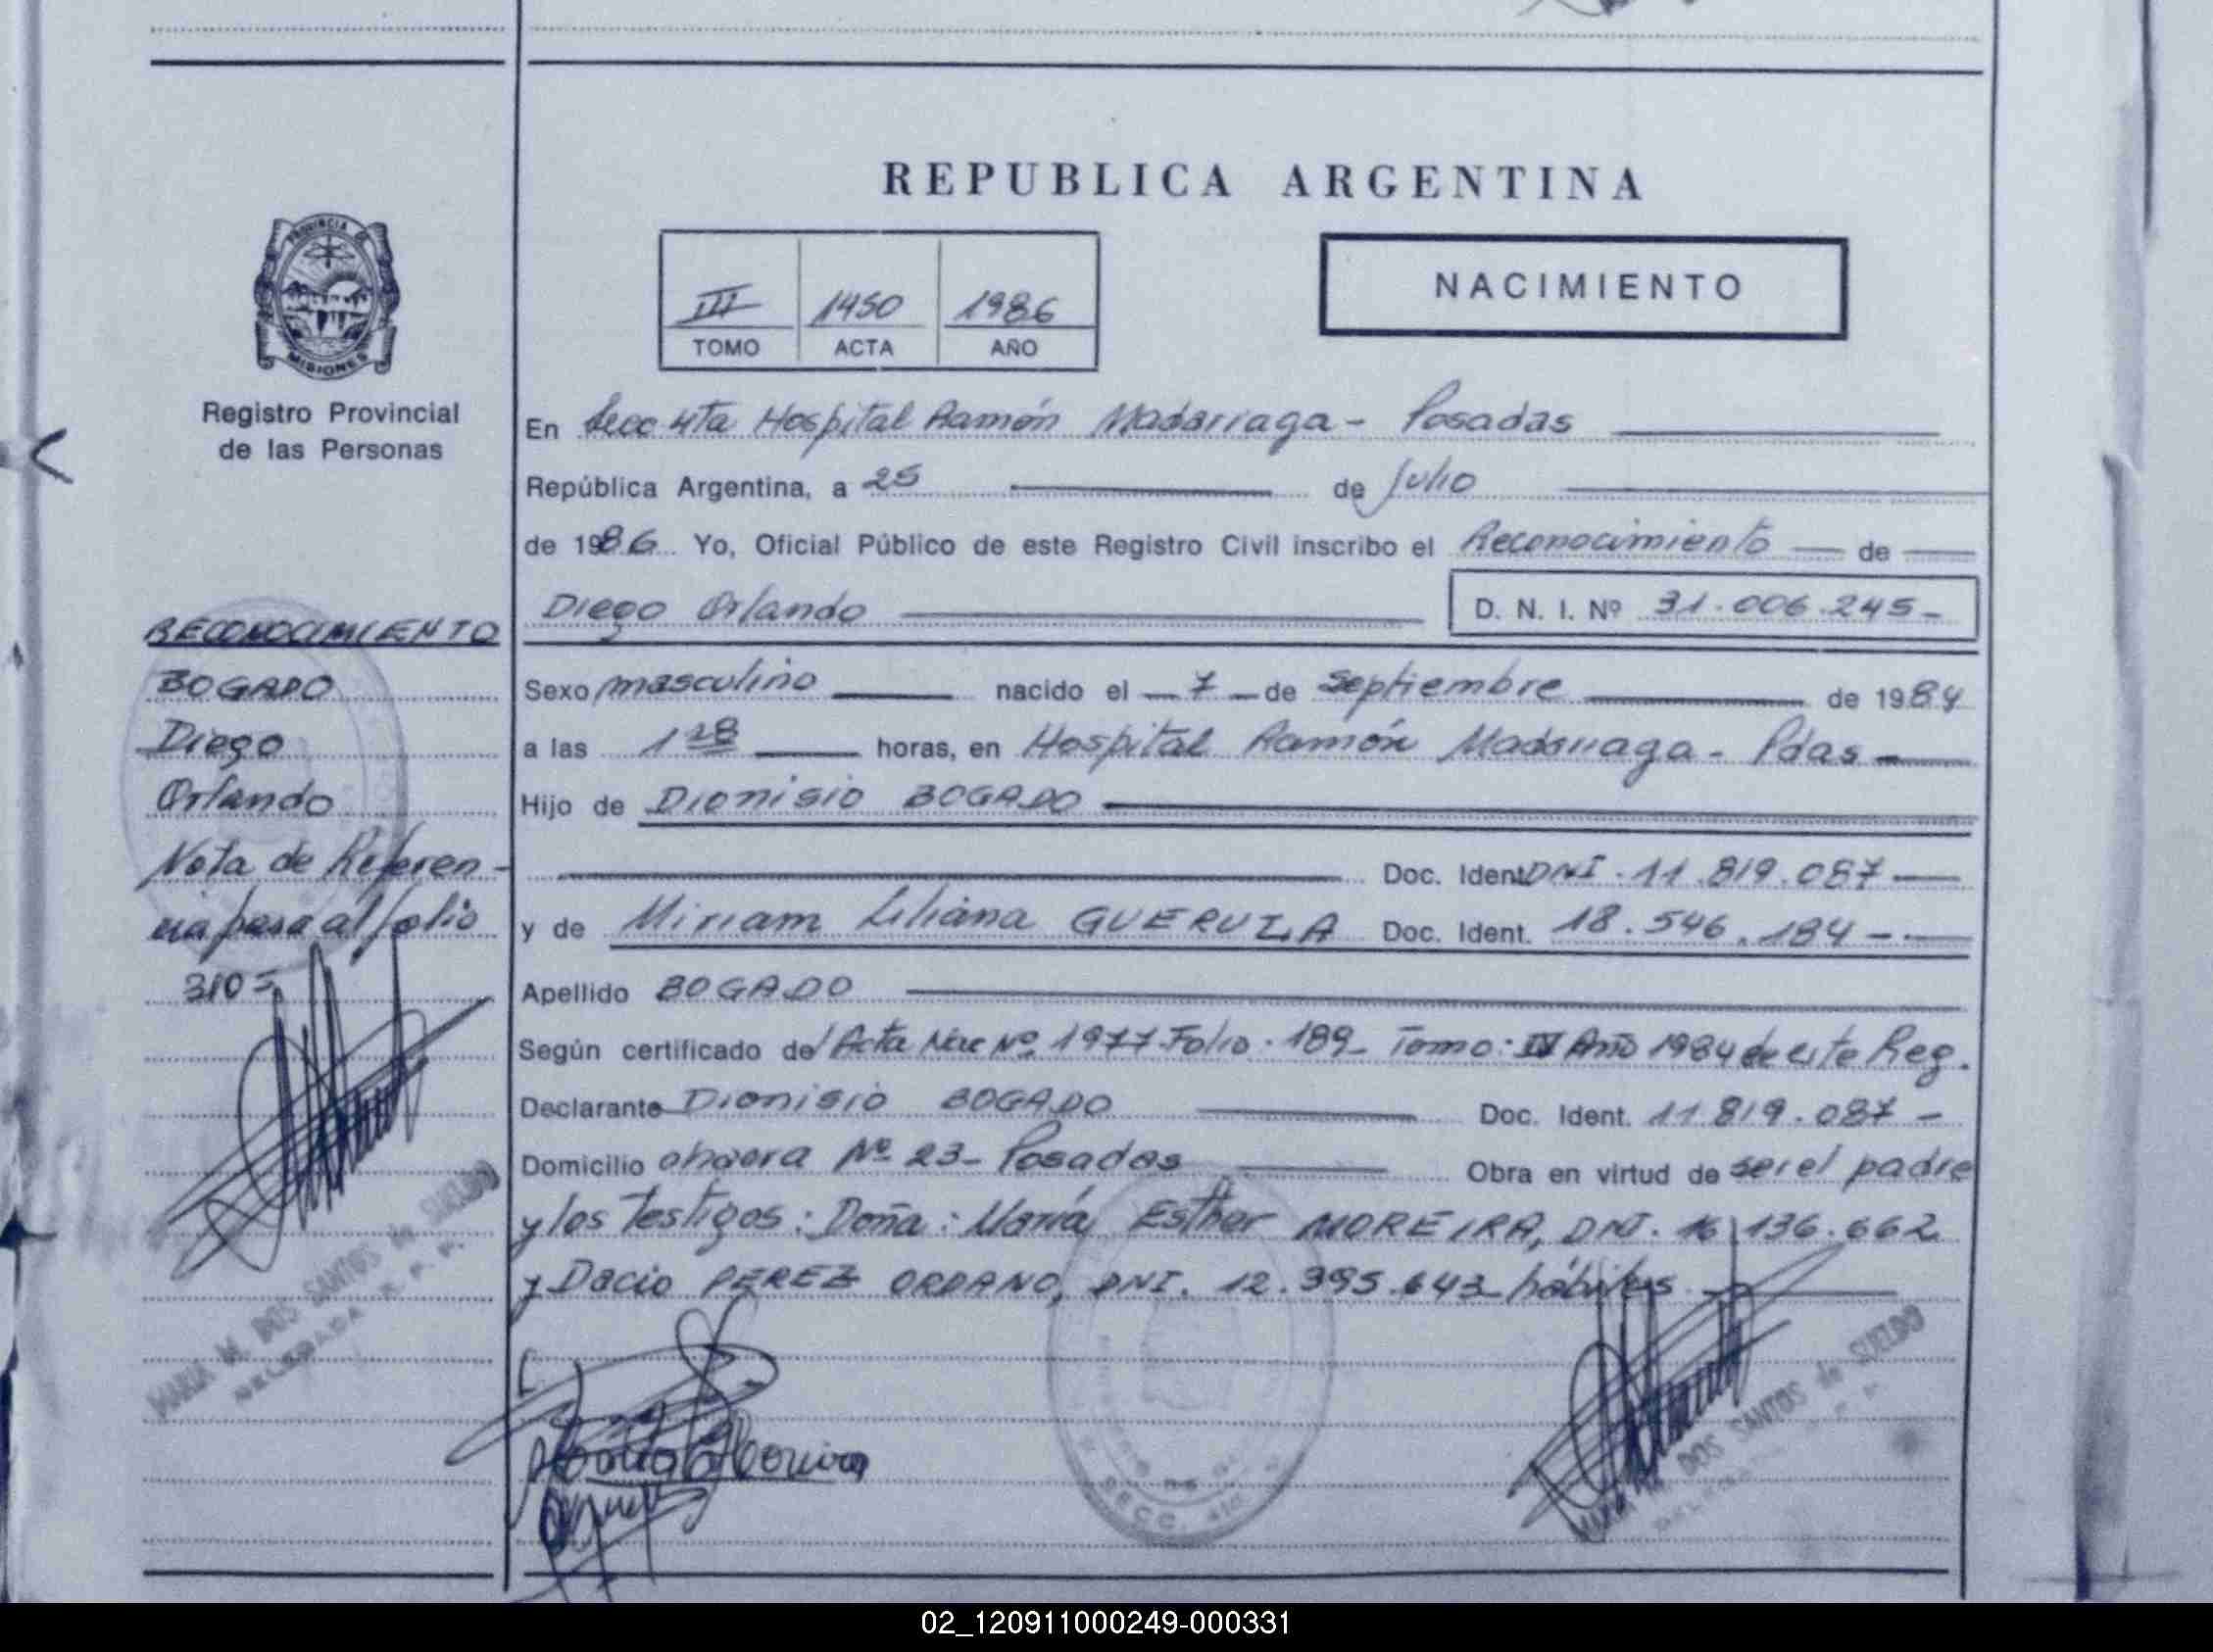 REPUBLICA ARGENTINA
PROVINCIA DE
MISIONES
III 1450 1986
TOMO ACTA AÑO
NACIMIENTO
Registro Provincial
de las Personas
En Secc 4ta Hospital Ramón Madariaga - Posadas
República Argentina, a 25 de Julio
de 1986 Yo, Oficial Público de este Registro Civil inscribo el Reconocimiento de
Diego Orlando D. N. I. Nº 31.006.245-
RECONOCIMIENTO
BOGADO
Diego
Orlando
Nota de Referen-
cia pasa al folio
310=
Sexo masculino nacido el 7 de Septiembre de 1984
a las 1 28 horas, en Hospital Ramón Madariaga - Pdas -
Hijo de Dionisio BOGADO
Doc. Ident DNI. 11.819.087
y de Miriam Liliana Doc. Ident. 18.546.184 -
Apellido BOGADO
Según certificado del Acta Nac Nº 1977 Folio. 189- Tomo: IV Año 1984 de este Reg.
Declarante Dionisio BOGADO Doc. Ident. 11.819.087 -
Domicilio chacra Nº 23- Posadas Obra en virtud de ser el padre
y los testigos: Doña: María Esther MOREIRA, DNI. 16.136.662
y Dacio PEREZ ORDANO, DNI. 12.395.643 hábiles
MARIA M. DOS SANTOS de SUELDO
DELEGADA R. P. P.
SECC. 4ta
MARIA M. DOS SANTOS de SUELDO
02_120911000249-000331